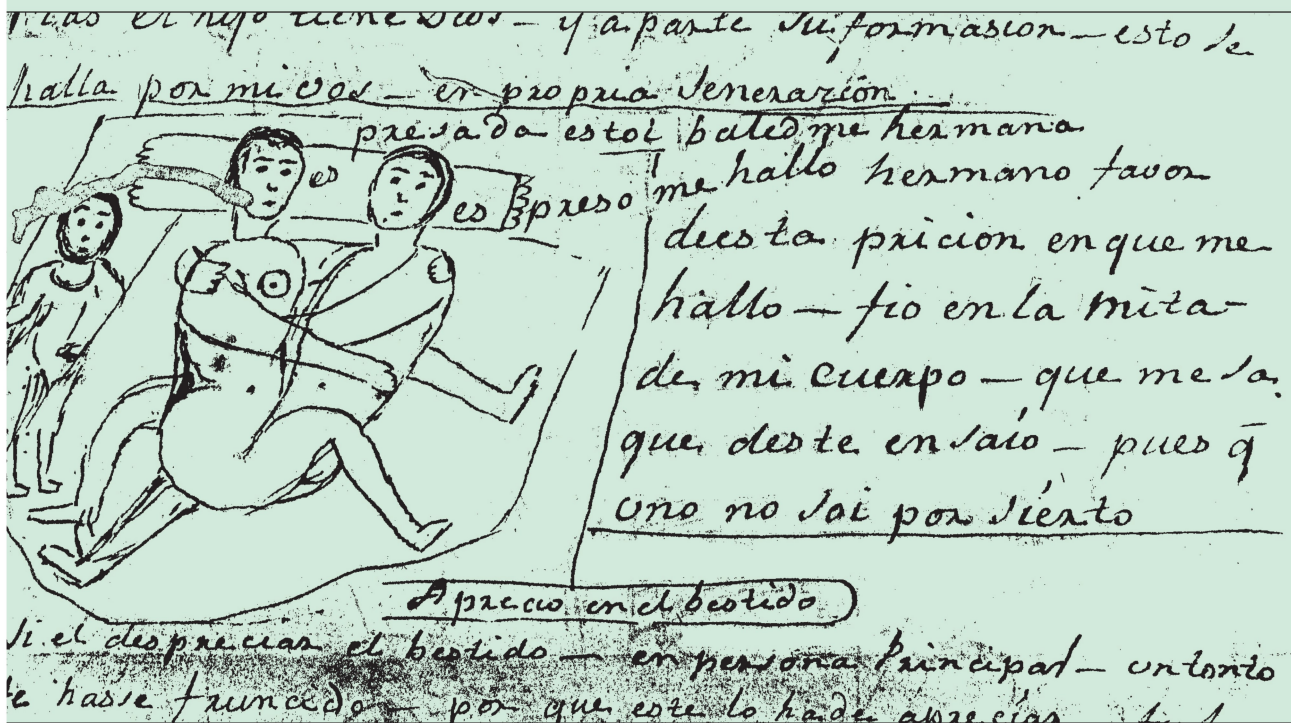 el hijo tiene Dios – y aparte su formasion – esto se
halla por mi vos – en propria venerazion
presada estoi baledme hermana
es es preso me hallo hermano favor
deesta pricion en que me
hallo – fio en la mita-
de mi cuerpo – que me sa
que deste ensaio – pues q̄
uno no soi por sierto
Aprecio en el bestido
Si el despreciar el bestido – en persona Principal – un tonto
hasse truncado – por que este lo hade apreciar